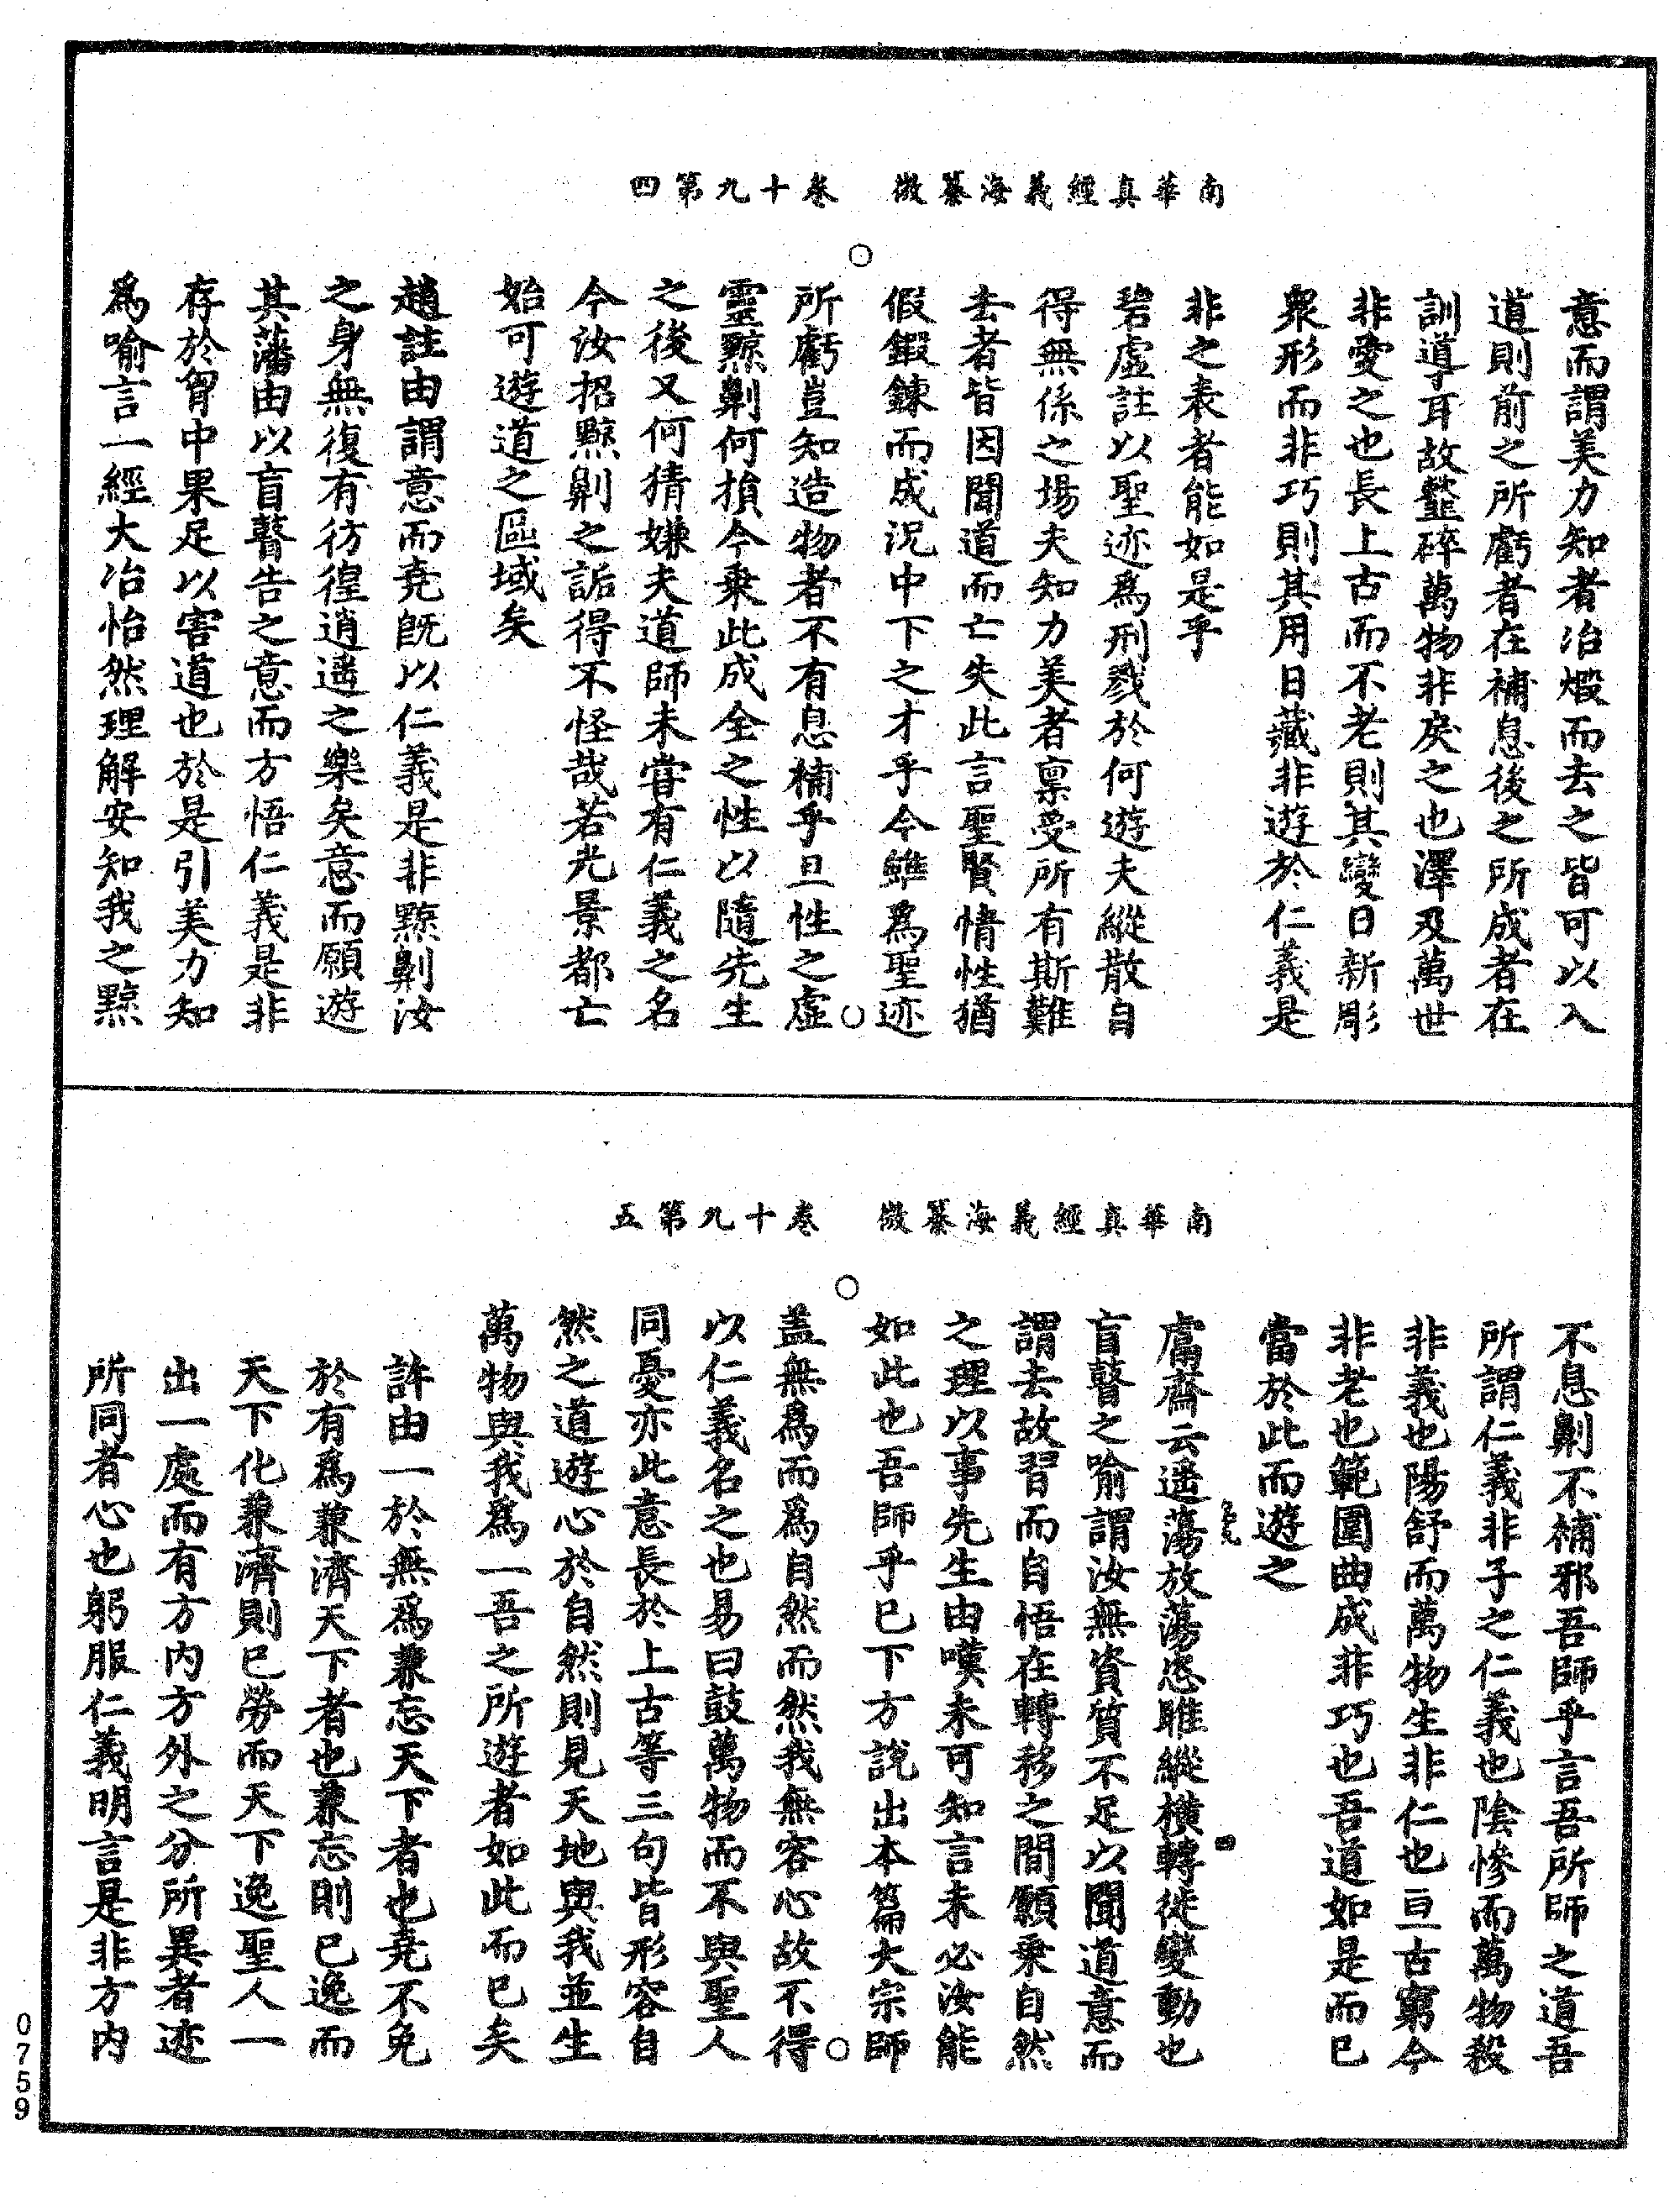 南華真經義海纂微　卷十九第四
意而謂美力知者冶煅而去之皆可以入
道則前之所虧者在補息後之所成者在
訓道耳故䪠碎萬物非戾之也澤及萬世
非愛之也長上古而不老則其變日新彫
衆形而非巧則其用日藏非遊於仁義是
非之表者能如是乎
碧虛註以聖迹爲刑戮於何遊夫縱散自
得無係之場夫知力美者稟受所有斯難
去者皆因聞道而亡失此言聖賢情性猶
假鍛鍊而成況中下之才乎今雖爲聖迹
所虧豈知造物者不有息補乎且性之虛
靈黥劓何損今乗此成全之性以隨先生
之後又何猜嫌夫道師未甞有仁義之名
今汝招黥劓之詬得不怪哉若光景都亡
始可遊道之區域矣
趙註由謂意而堯旣以仁義是非黥劓汝
之身無復有彷徨逍遥之樂矣意而願遊
其藩由以盲瞽告之意而方悟仁義是非
存於胷中果足以害道也於是引美力知
爲喻言一經大冶怡然理解安知我之黥
南華真經義海纂微　卷十九第五
不息劓不補邪吾師乎言吾所師之道吾
所謂仁義非子之仁義也陰慘而萬物殺
非義也陽舒而萬物生非仁也亘古窮今
非老也範圍曲成非巧也吾道如是而已
當於此而遊之
鬳齋云遥蕩放蕩恣睢縱橫轉徙變動也
盲瞽之喻謂汝無資質不足以聞道意而
謂去故習而自悟在轉移之間願乗自然
之理以事先生由嘆未可知言未必汝能
如此也吾師乎已下方說出本篇大宗師
盖無爲而爲自然而然我無容心故不得
以仁義名之也易曰鼓萬物而不與聖人
同憂亦此意長於上古等三句皆形容自
然之道遊心於自然則見天地與我並生
萬物與我爲一吾之所遊者如此而已矣
許由一於無爲兼忘天下者也堯不免
於有爲兼濟天下者也兼忘則已逸而
天下化兼濟則已勞而天下逸聖人一
出一處而有方内方外之分所異者迹
所同者心也躬服仁義明言是非方内
0759